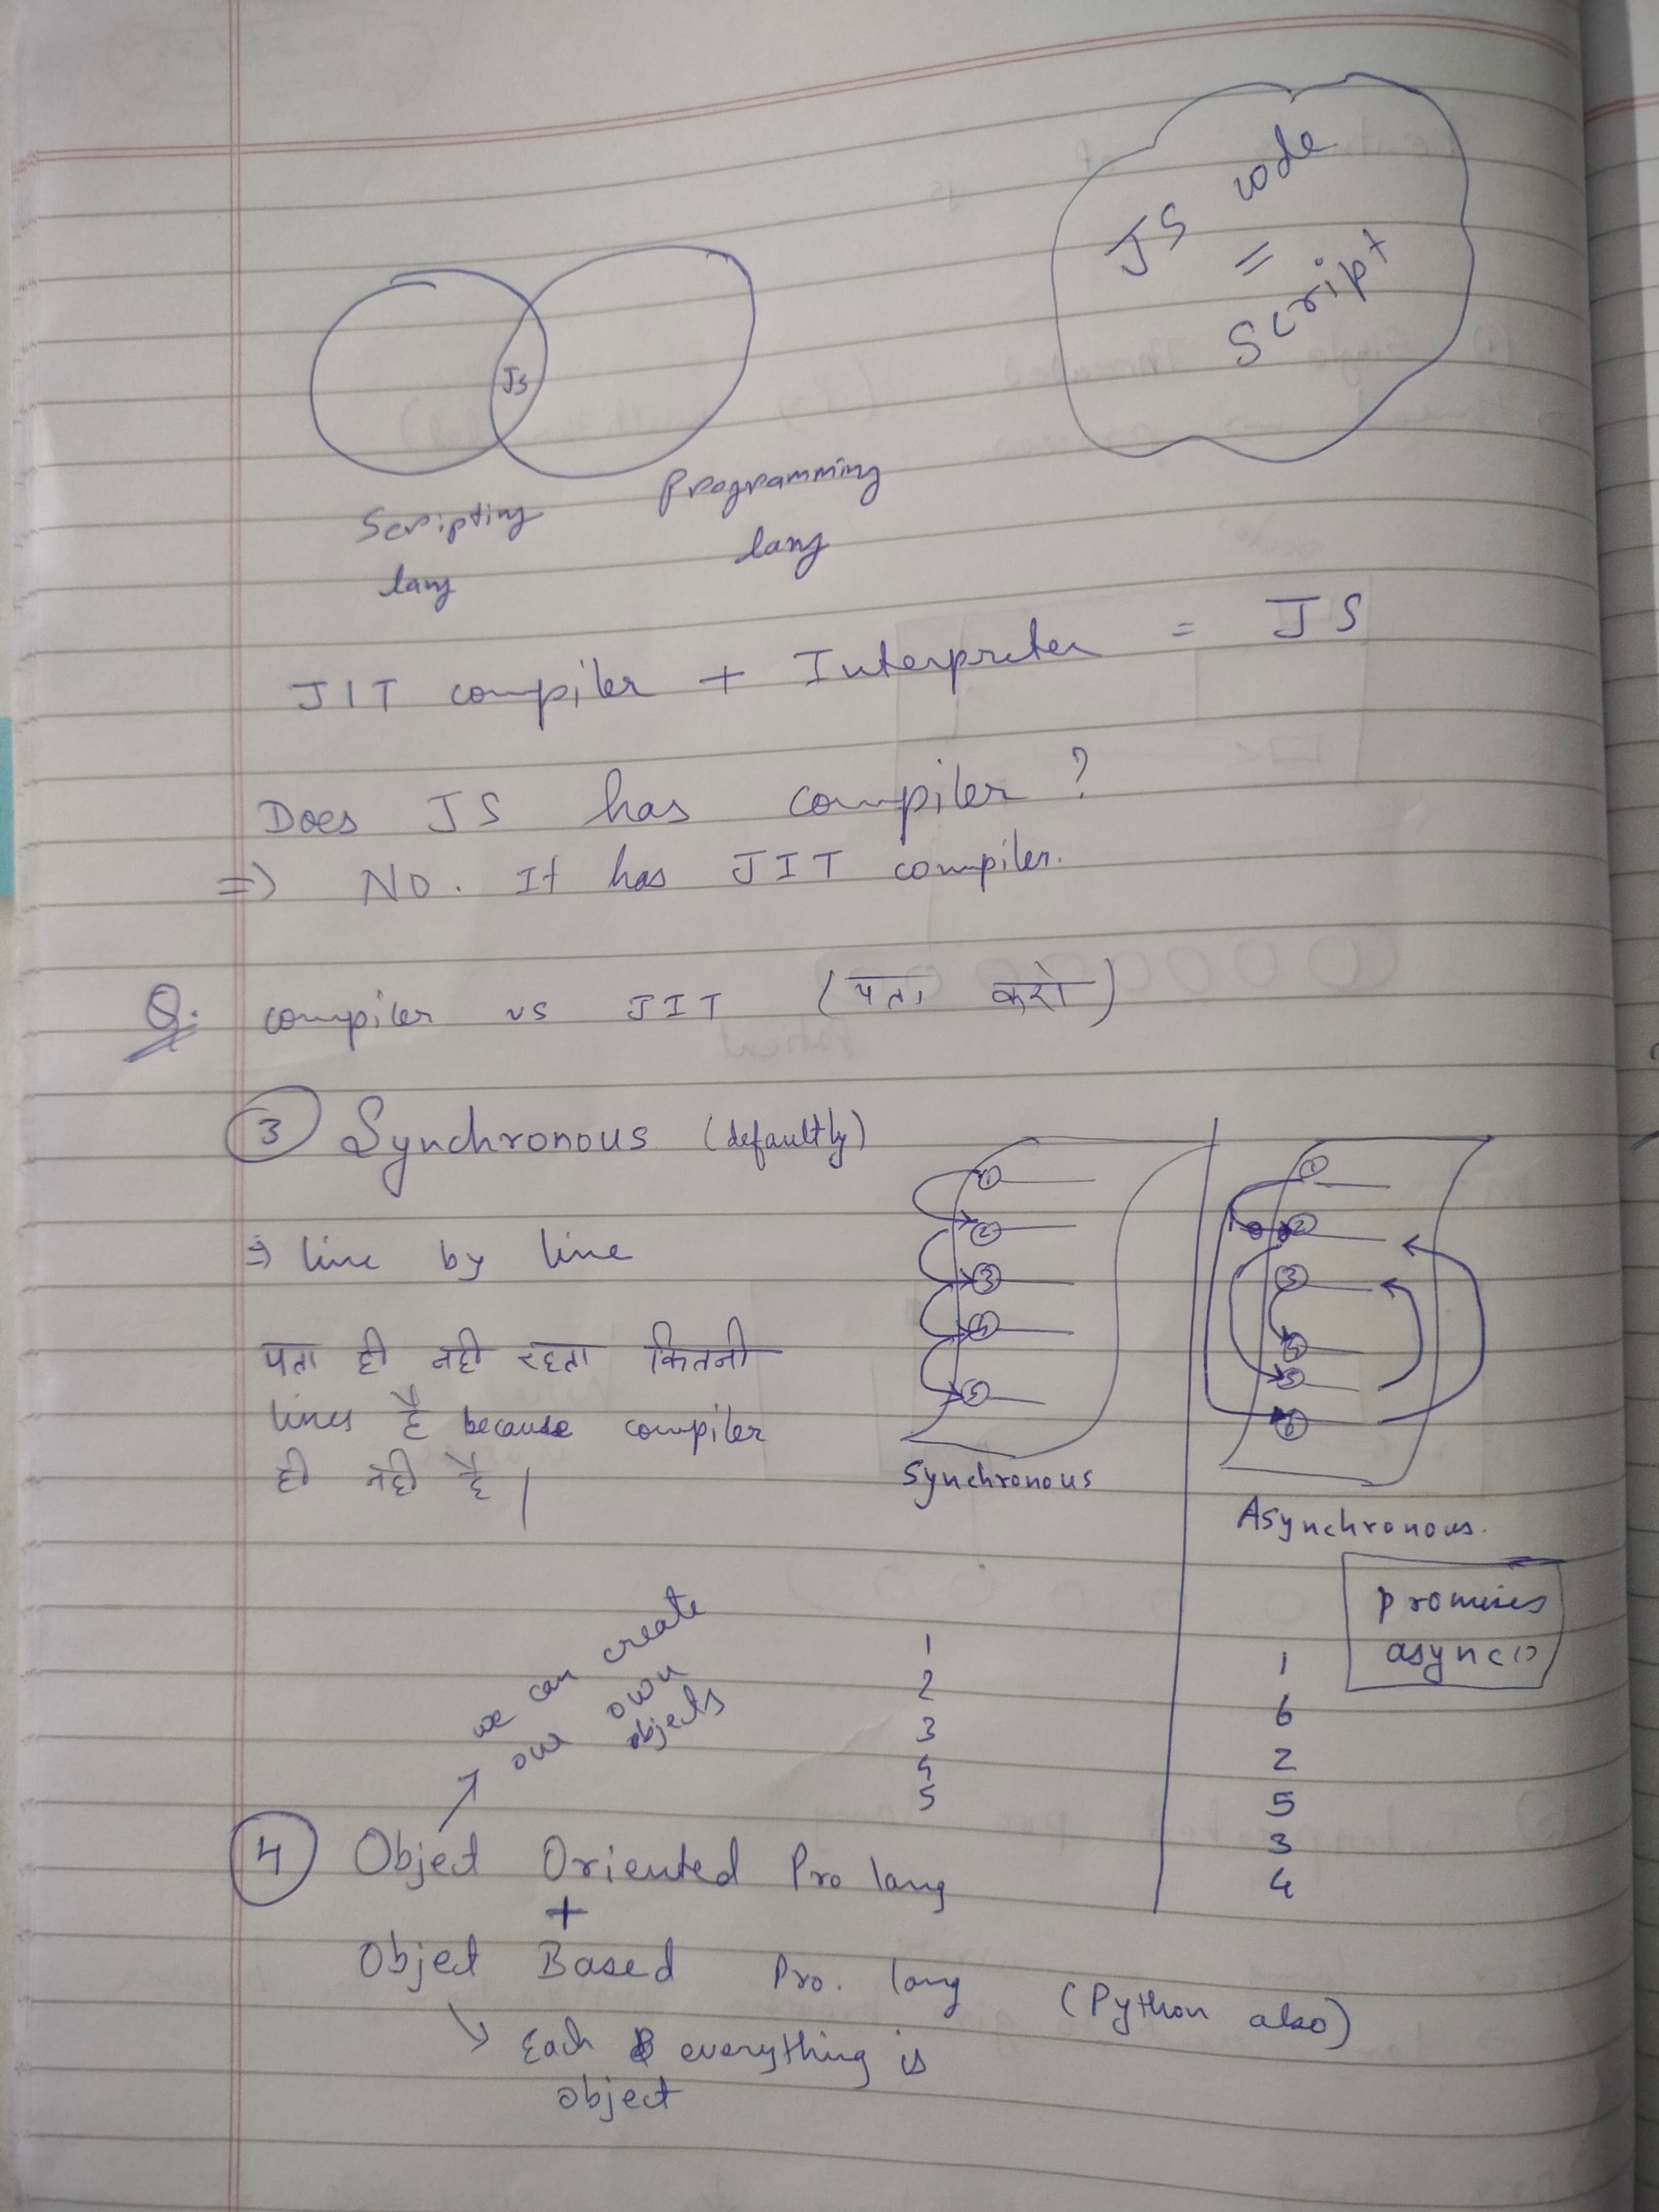 JS code
=
Script
JS
Scripting
lang
Programming
lang
JIT compiler + Interpreter = JS
Does JS has compiler ?
⇒ No. It has JIT compiler.
Q. compiler vs JIT (पता करो)
③ Synchronous (defaultly)
⇒ line by line
पता ही नही रहता कितनी
lines है because compiler
ही नही है |
①
②
③
④
⑤
Synchronous
①
②
③
④
⑤
⑥
Asynchronous.
promises
async()
1
2
3
4
5
1
6
2
5
3
4
we can create
our own
objects
④ Object Oriented Pro lang
+
Object Based Pro. lang (Python also)
Each & everything is
object